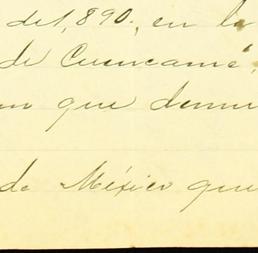 del 1,890., en la
de Cuencamé,
que
de México que